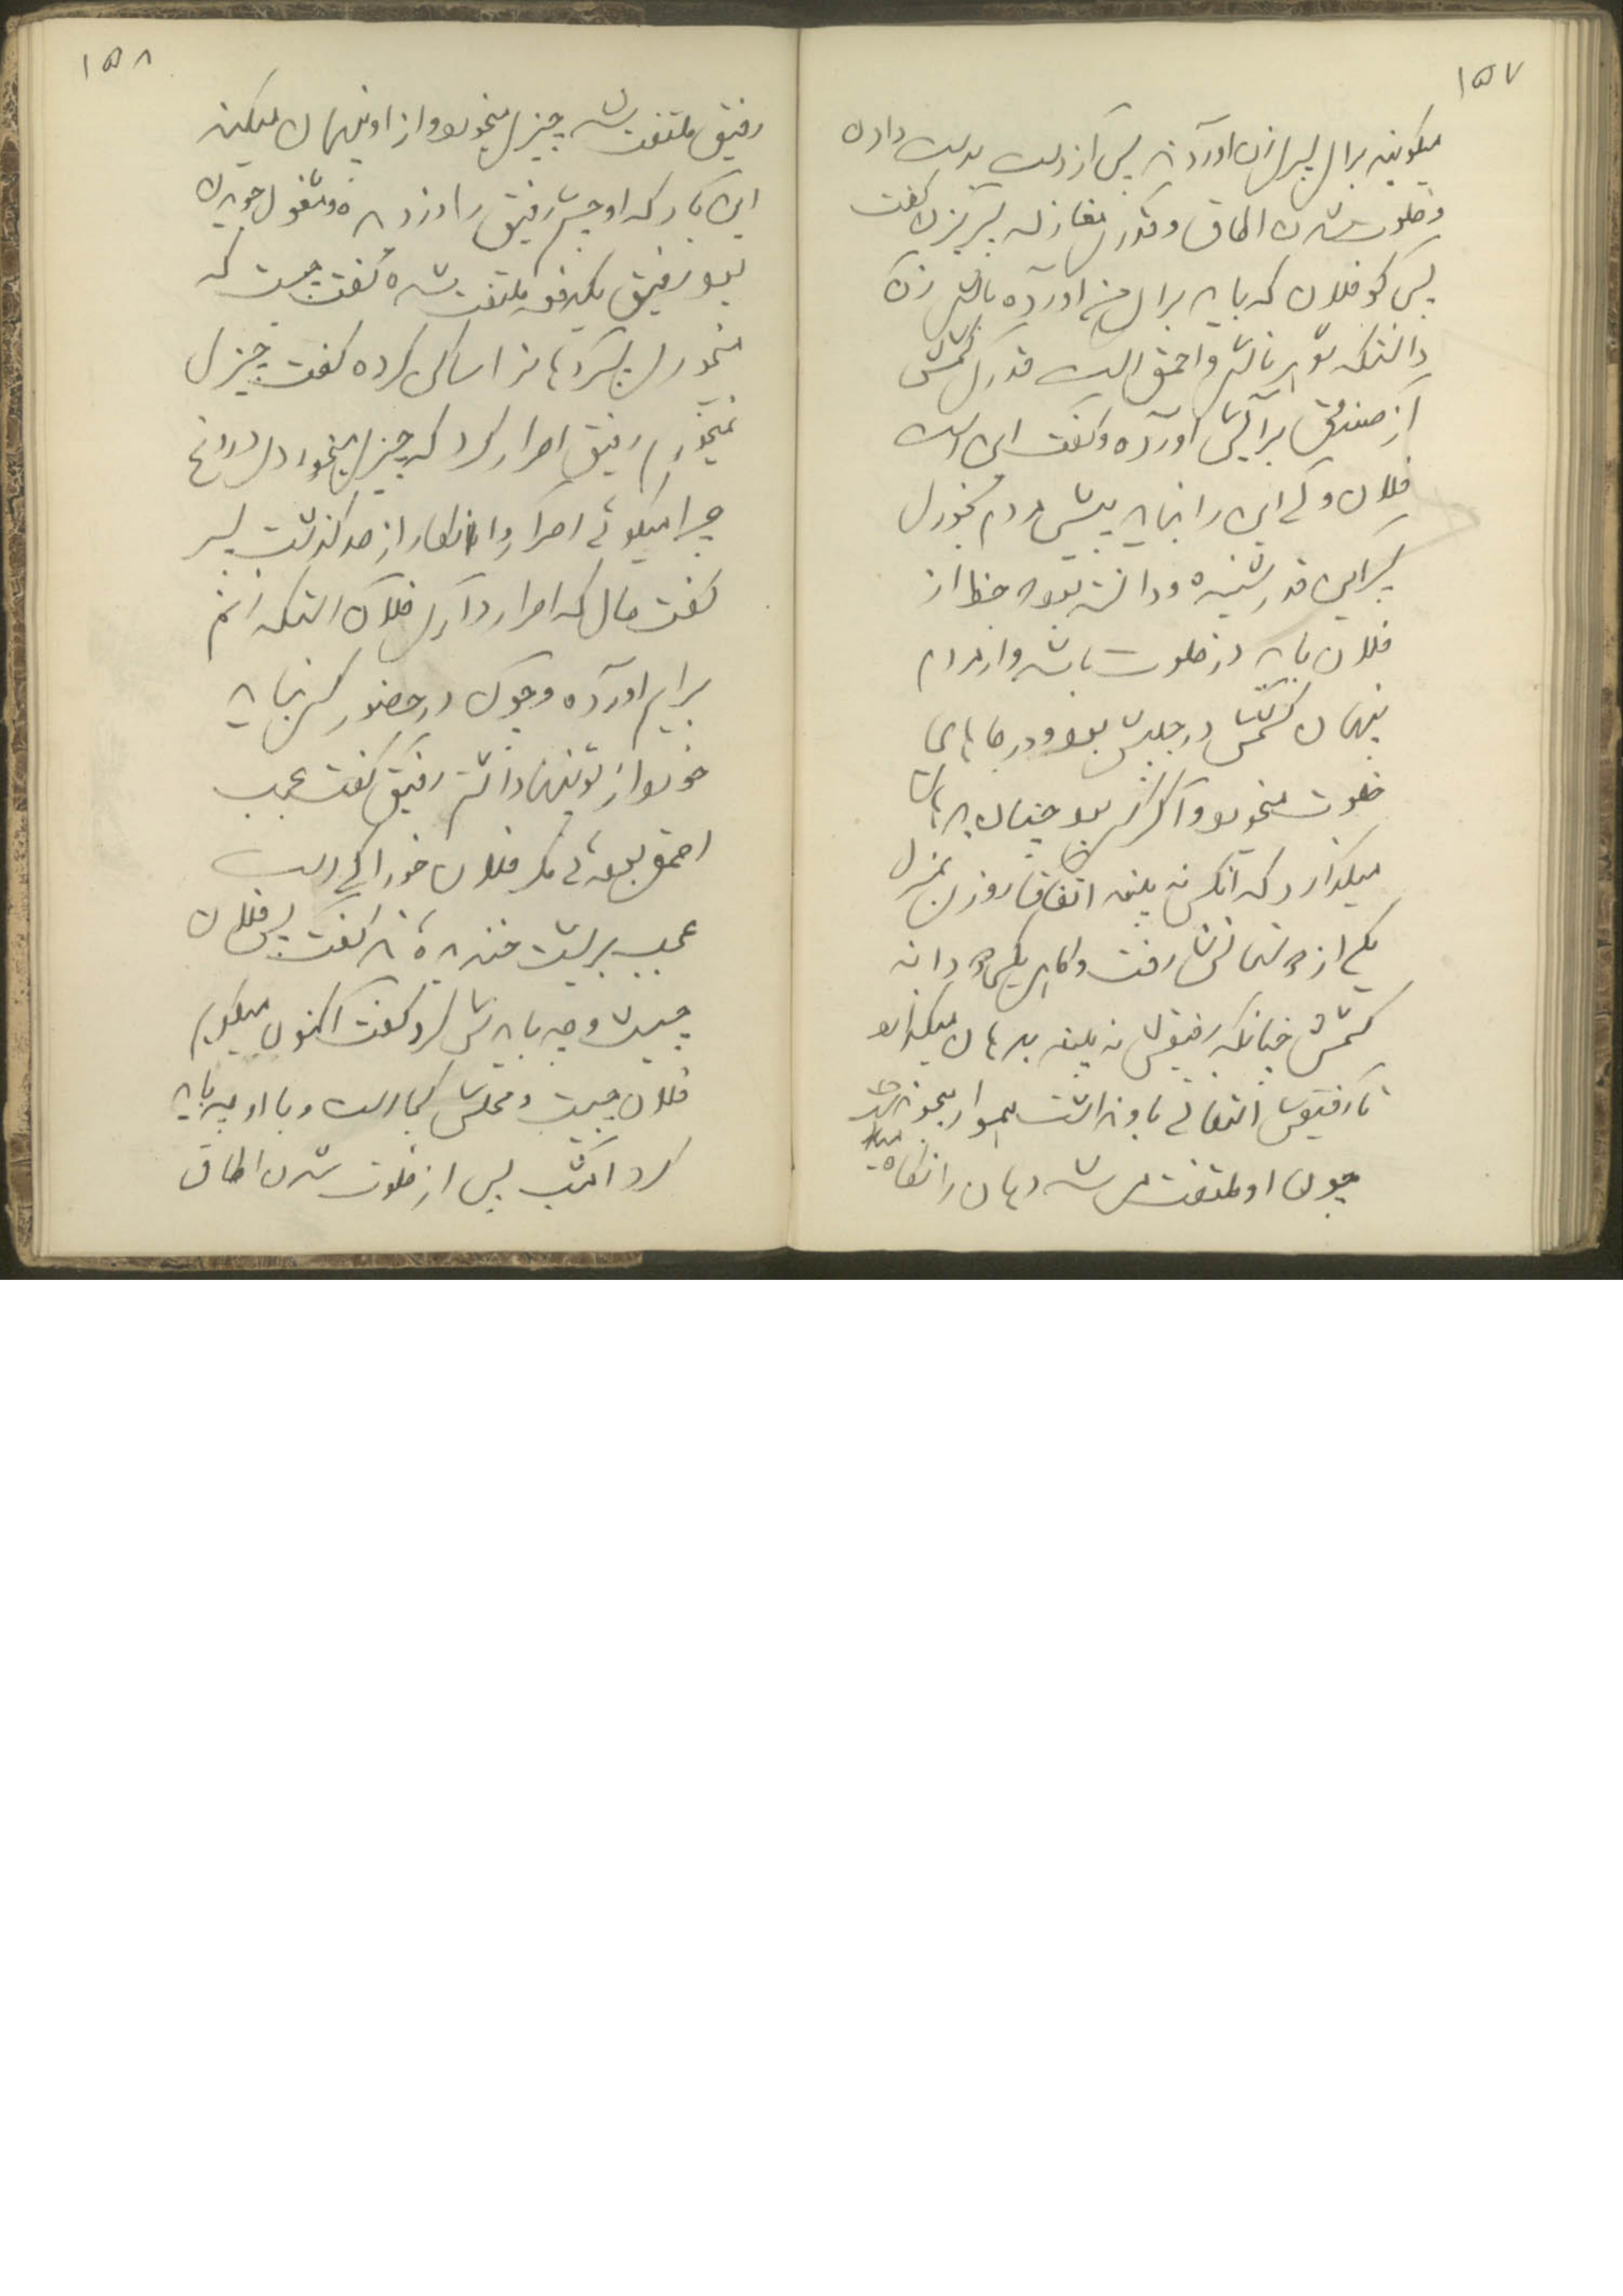 ۱۵۷
میکویند برای پسری زن اوردند پس از دست بدست دادن
و خلوت شدن اطاق و قدری مغازله پسر بزن گفت
پس کو فلان که باید برای من اورده باشی زن
دانستکه شوهر ناشی و احمق است قدری کشمش
از صندوق برایش اورده و گفت این است
فلان ولی این را نباید پیش مردم بخوری
پسر این قدر شنیده و دانسته بود حظ از
فلان باید در خلوت باشد و از مردم
پنهان کشمش در جیبش بود و در جاهای
خلوت میخورد و اگر کسی بود چنان بدهان
میگذارد که انکس نه بیند اتفاقا روزی بمنزل
یکی از دوستانش رفت و گاهی یکی دو دانه
کشمش چنانکه رفیقش نه بیند بدهان میگذارد
تا رفیقش التفاتی باو نداشت
چون او ملتفت می شد دهان را نگاه
۱۵۸
رفیق ملتفت شد چیزی میخورد و از او پنهان میکند
این بار که او چشم رفیق را دزدیده و مشغول جویدن
بود رفیق یکدفعه ملتفت شده گفت چیست که
میخوری پسر دهانرا ساکن کرده گفت چیزی
نمیخورم رفیق اصرار کرد که چیزی میخوردی دروغ
چرا میکوئی اصرار و انکار از حد گذشت پسر
گفت حال که اصرار داری فلان استکه زنم
برایم اورده و چون در حضور کس نباید
خورد از تو پنهان داشتم رفیق گفت عجب
احمق بودۀ مگر فلان خوراکی است
عجب بریشت خندیده اند گفت پس فلان
چیست و چه بایدش کرد گفت اکنون میگویم
فلان چیست و محلش کجا است و با او چه باید
کرد امشب پس از خلوت شدن اطاق